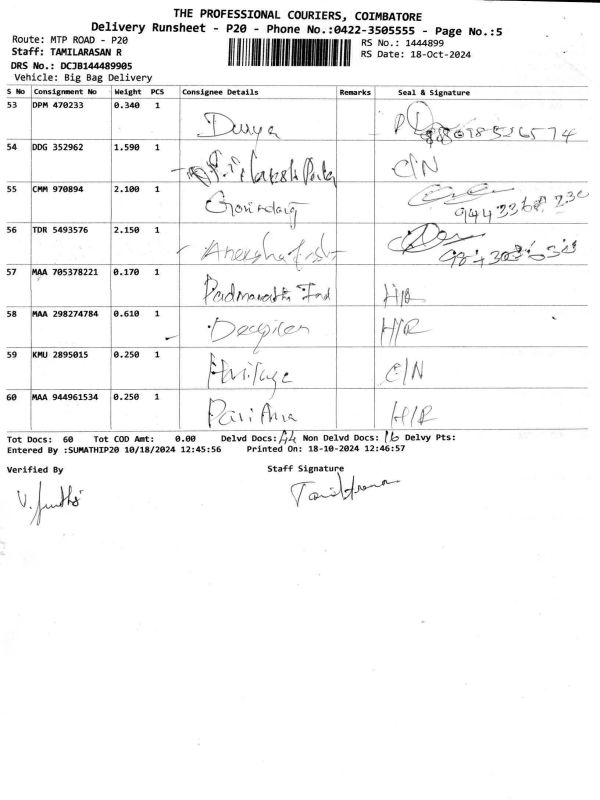 THE PROFESSIONAL COURIERS, COIMBATORE
Delivery Runsheet - P20 - Phone No.:0422-3505555 - Page No.:5
Route: MTP ROAD - P20
RS No.: 1444899
Staff: TAMILARASAN R
RS Date: 18-Oct-2024
DRS No.: DCJB144489905
Vehicle: Big Bag Delivery
S No Consignment No Weight PCS Consignee Details Remarks Seal & Signature
53 DPM 470233 0.340 1
Durga
54 DDG 352962 1.590 1
C/N
55 CMM 970894 2.100 1
Govindaraj
56 TDR 5493576 2.150 1
57 MAA 705378221 0.170 1
Padmavathi Ind H/R
58 MAA 298274784 0.610 1
H/R
59 KMU 2895015 0.250 1
Heritage C/N
60 MAA 944961534 0.250 1
H/R
Tot Docs: 60 Tot COD Amt: 0.00 Delvd Docs: 44 Non Delvd Docs: 16 Delvy Pts:
Entered By :SUMATHIP20 10/18/2024 12:45:56 Printed On: 18-10-2024 12:46:57
Verified By Staff Signature